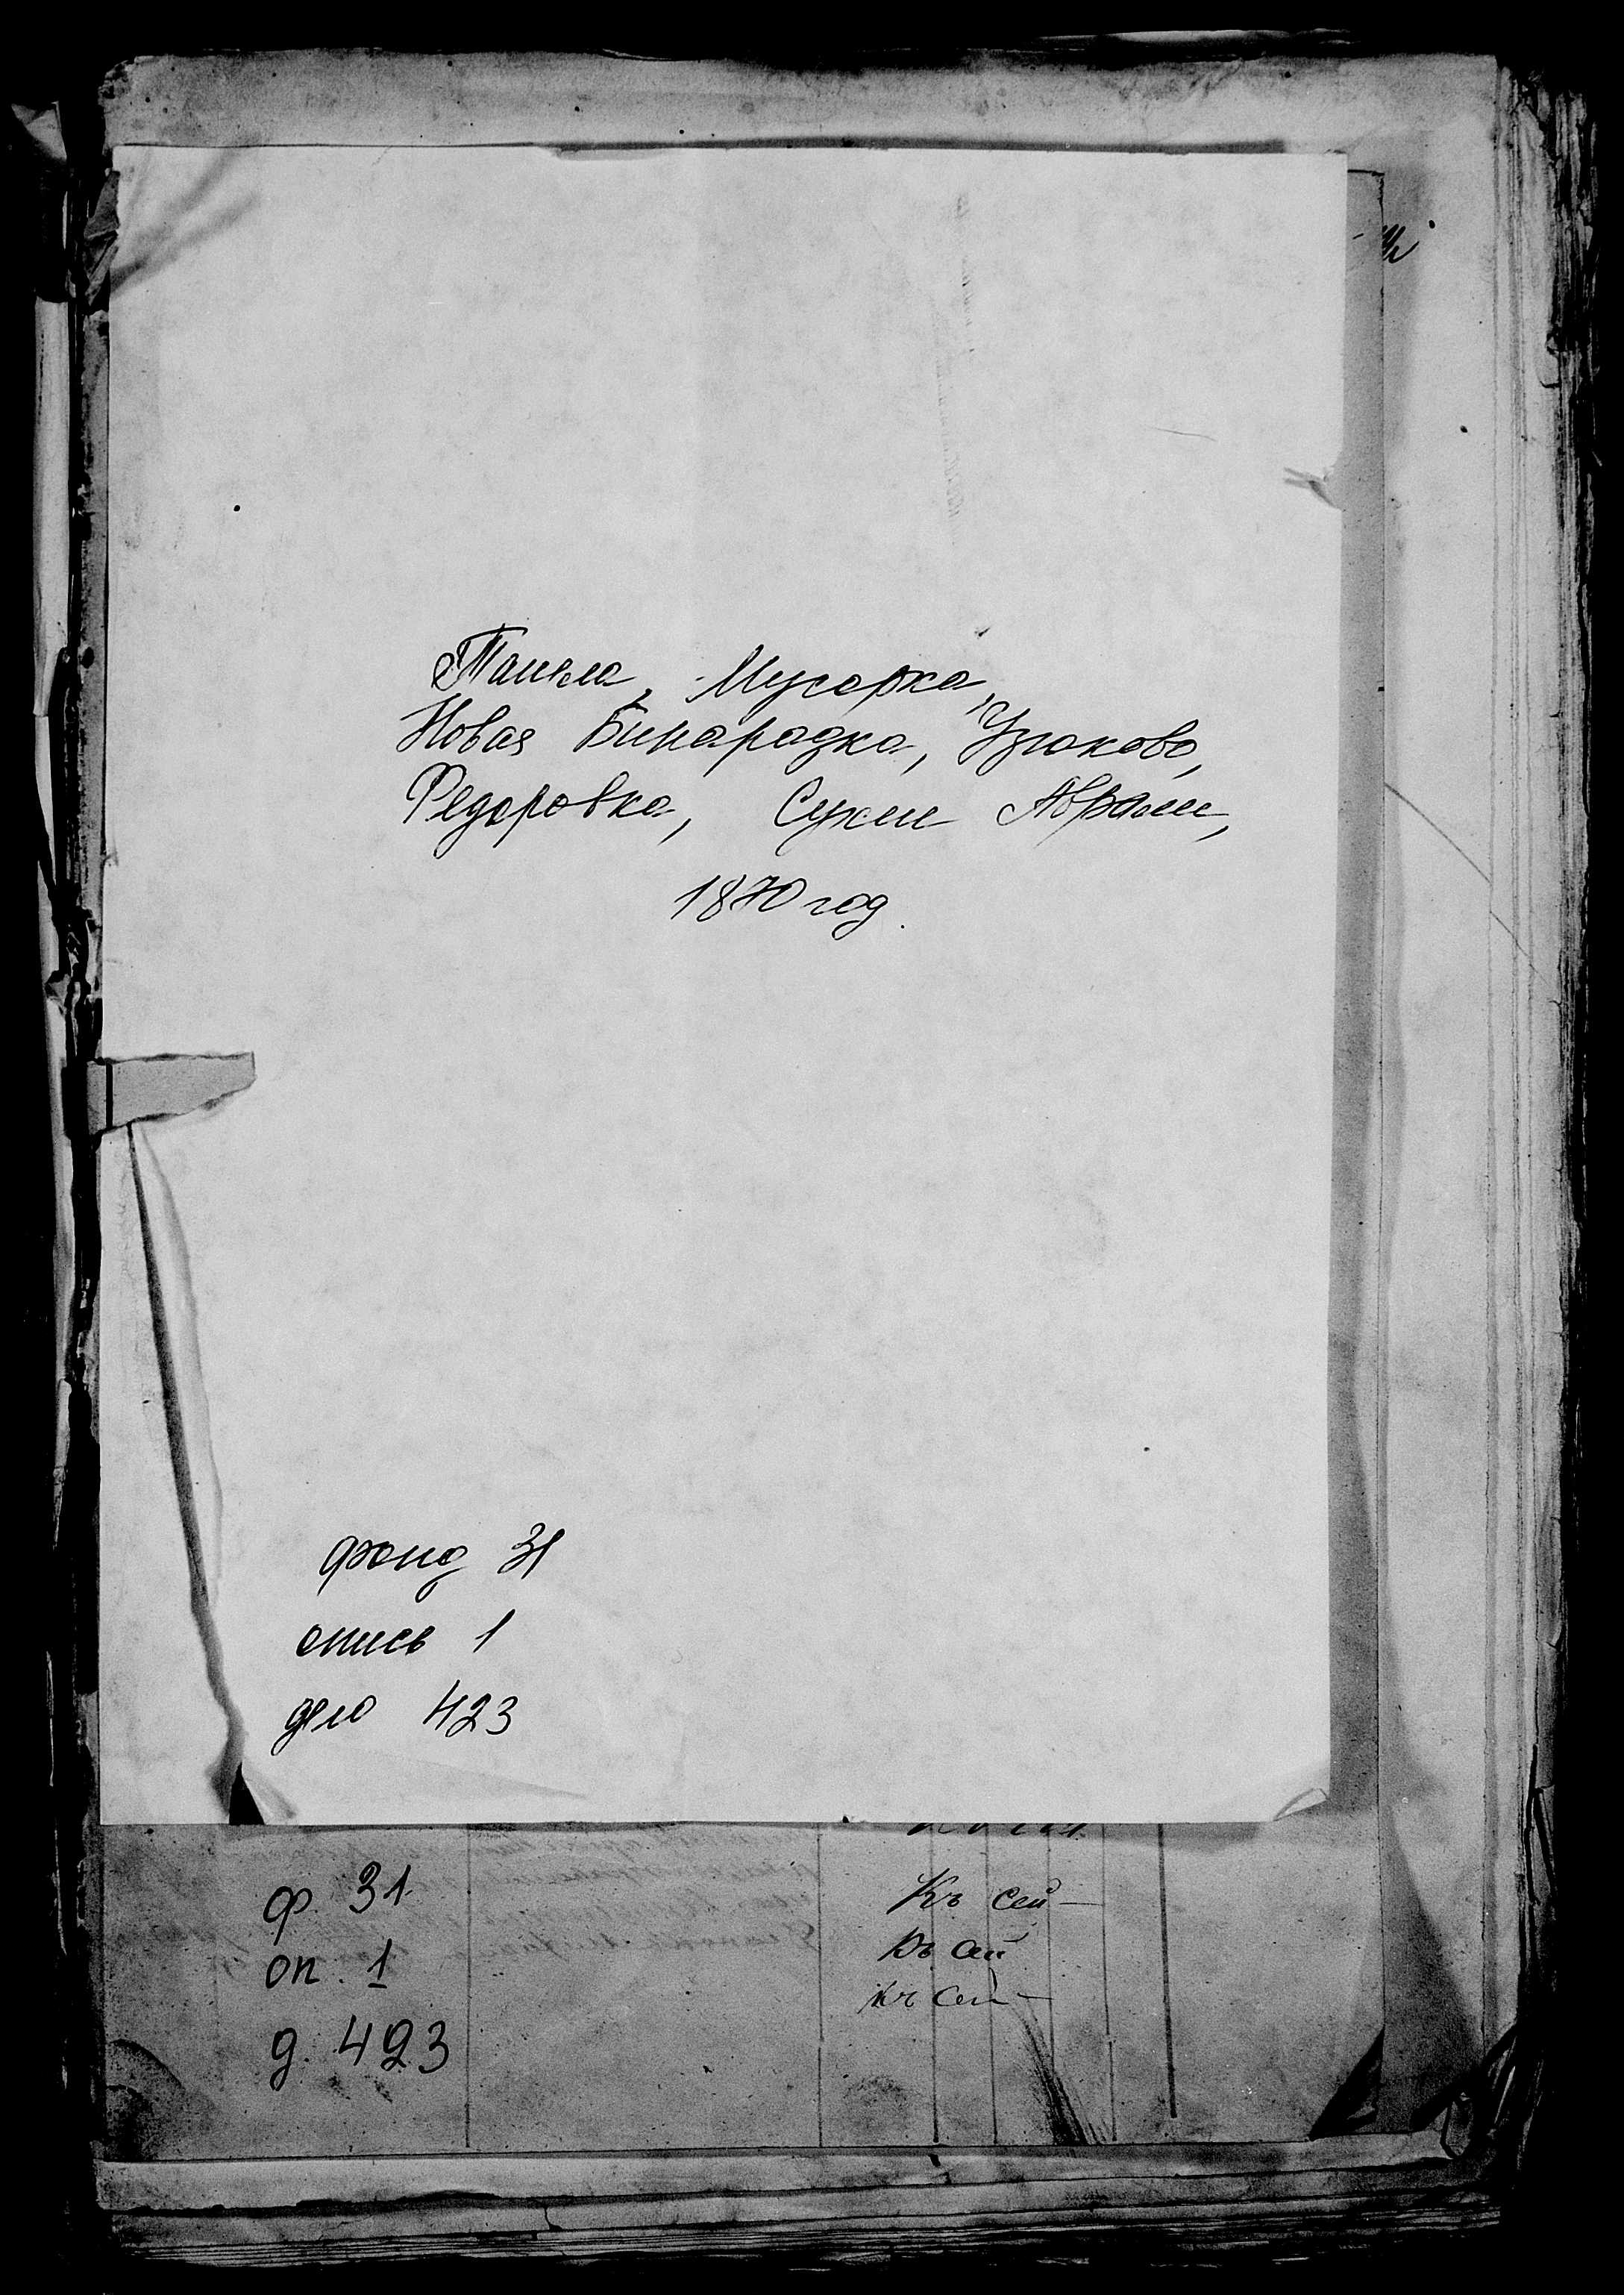 Ташла, Мусорка,
Новая Бинарадка, Узюково,
Федоровка, Сухие Аврали,
1870 год.
фонд 31
опись 1
дело 423
ф. 31
оп. 1
д. 423
Къ сей
Къ сей
Къ сей